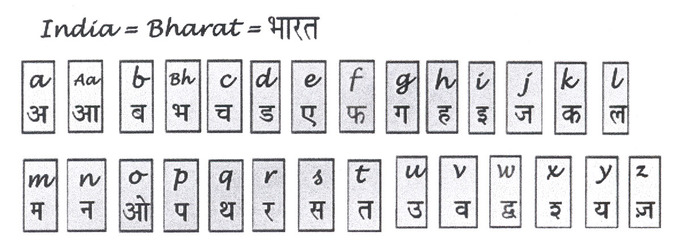 India = Bharat = भारत
a Aa b Bh c d e f g h i j k l
अ आ ब भ च ड ए फ ग ह इ ज क ल
m n o p q r s t u v w x y z
म न ओ प थ र स त उ व द्व श्‍ य ज़